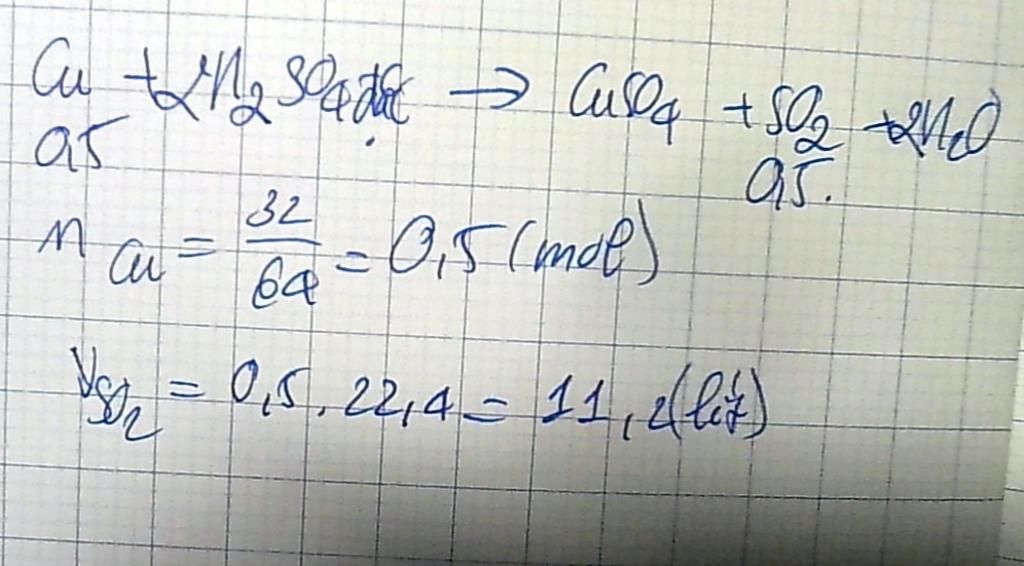 Cu + 2H₂SO₄ đặc → CuSO₄ + SO₂ + 2H₂O
0,5 0,5.
n Cu = 32/64 = 0,5 (mol)
V SO₂ = 0,5 . 22,4 = 11,2 (lít)